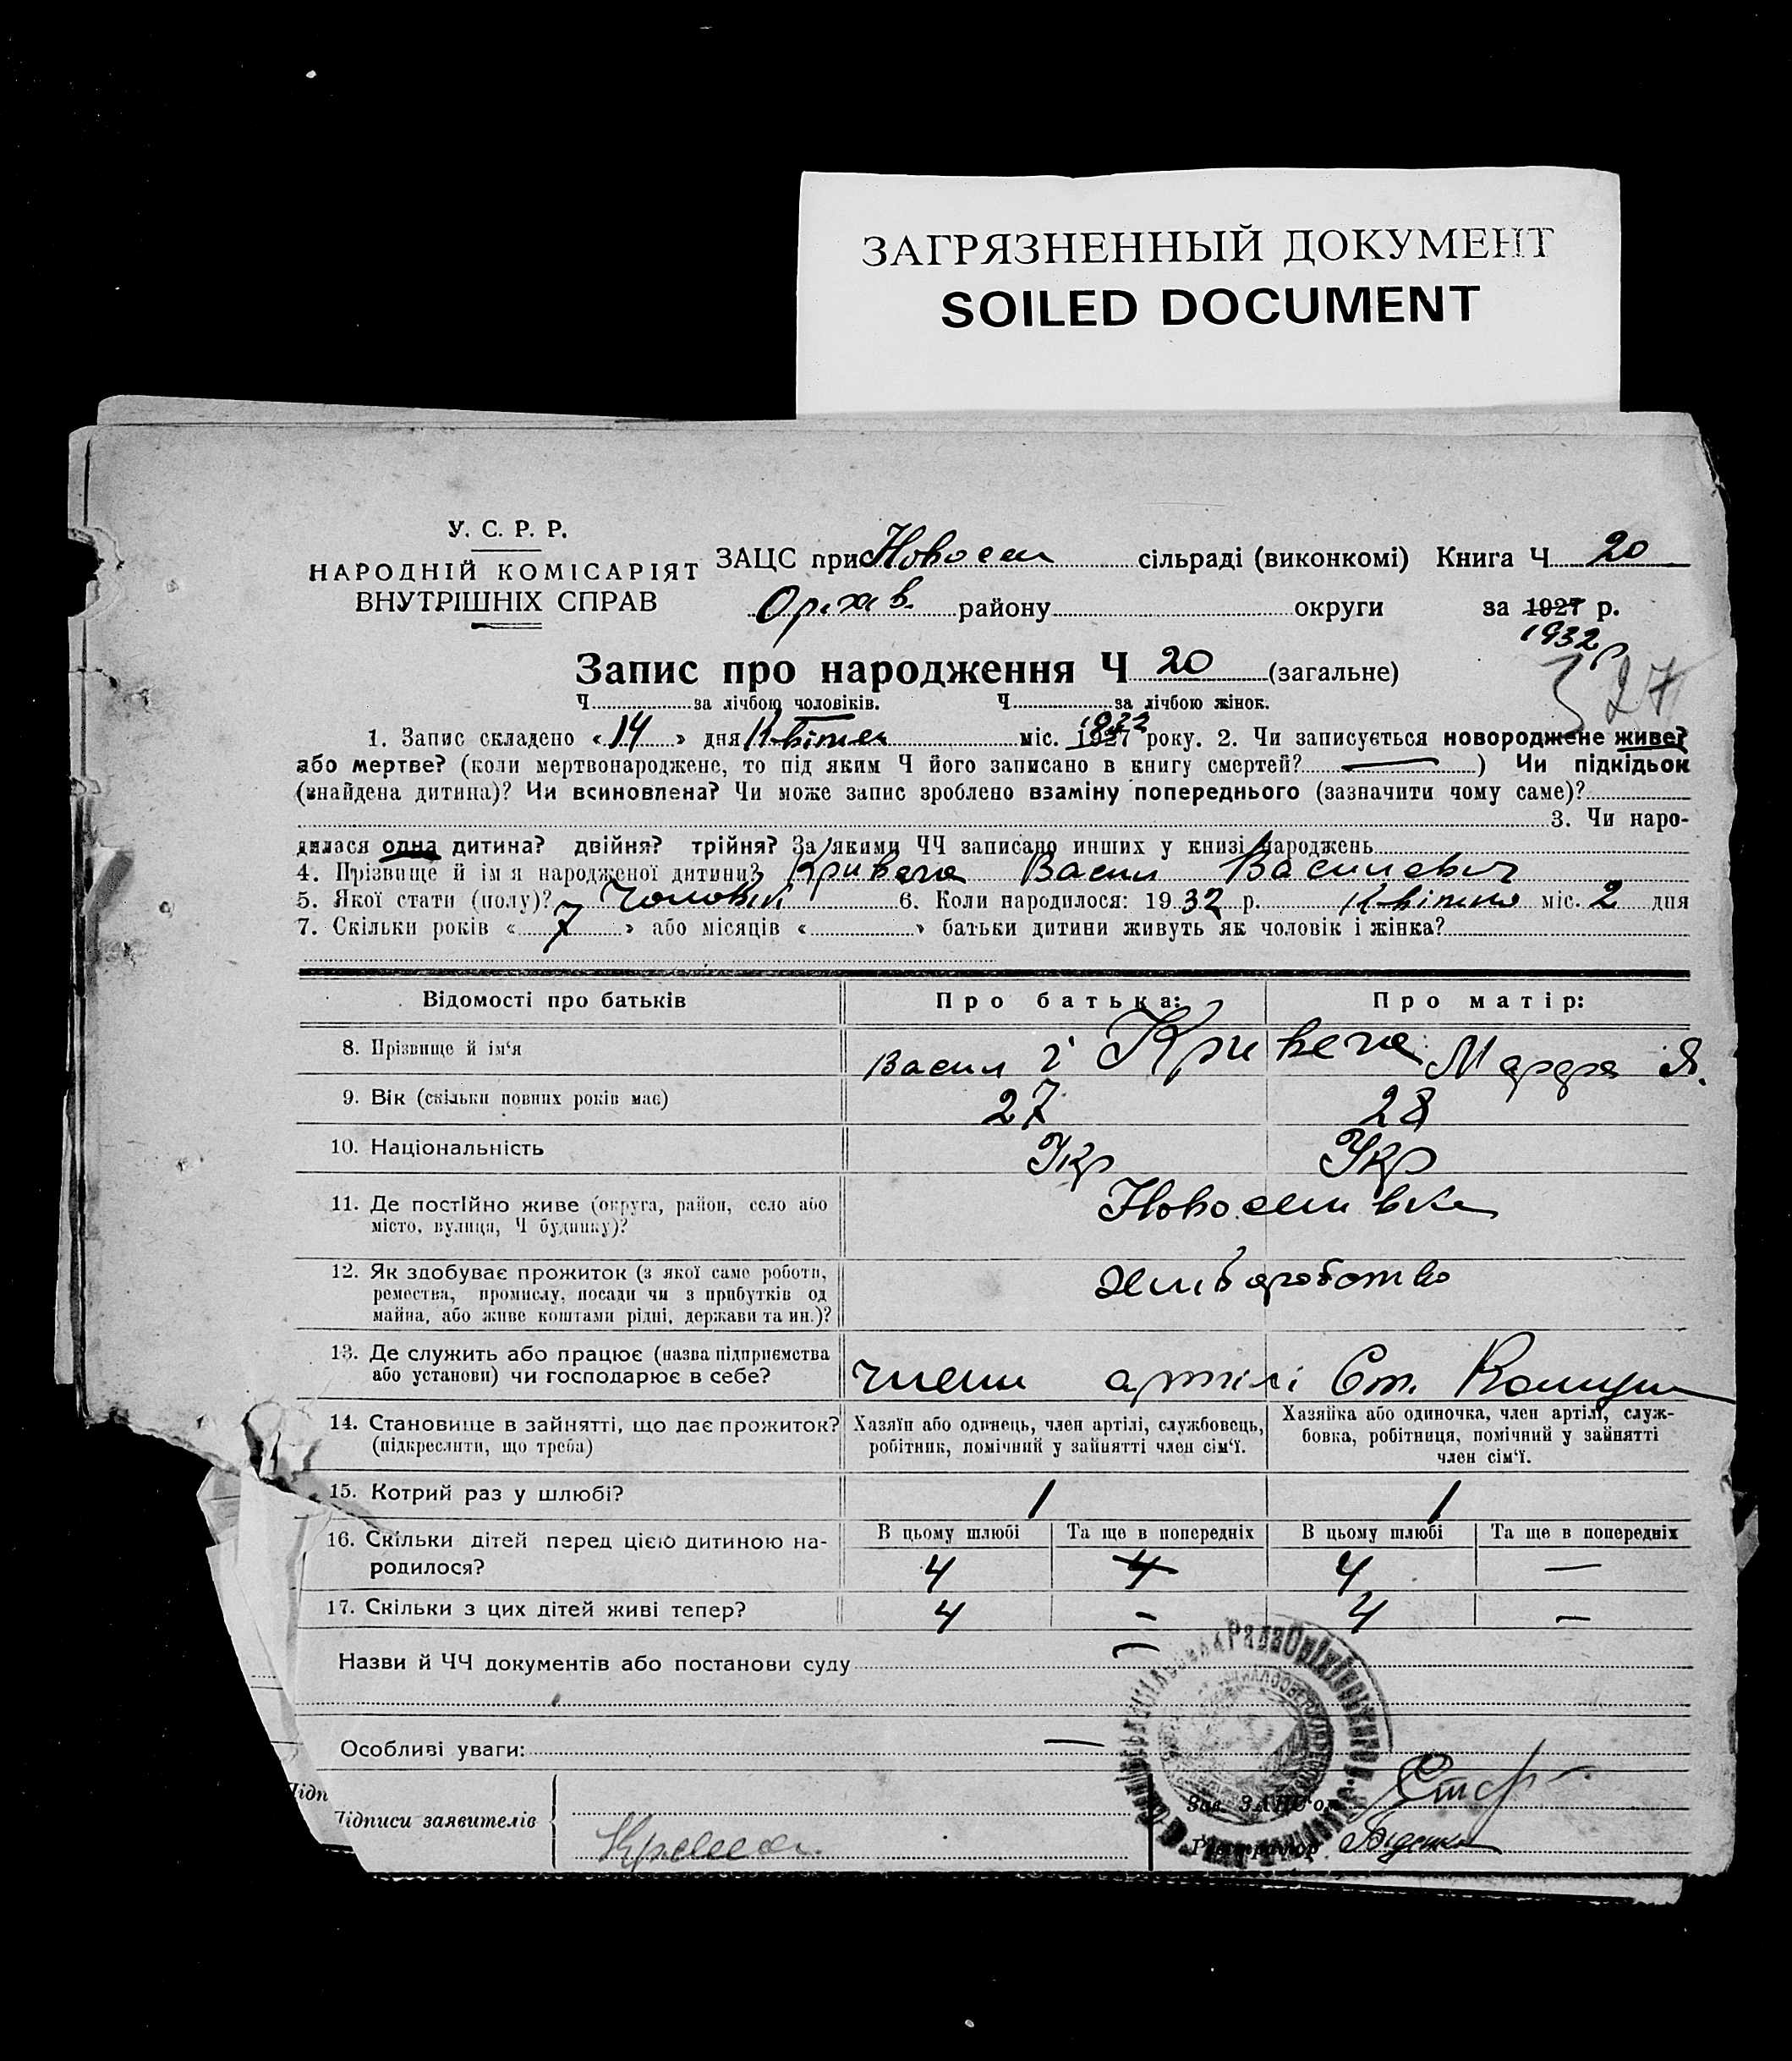 ЗАГРЯЗНЕННЫЙ ДОКУМЕНТ
SOILED DOCUMENT
У. С. Р. Р.
НАРОДНІЙ КОМІСАРІЯТ
ВНУТРІШНІХ СПРАВ
ЗАЦС при Новосел сільраді (виконкомі) Книга Ч 20
Оріхів. району округи за 1927 р.
1932 р
Запис про народження Ч 20 (загальне)
27
Ч за лічбою чоловіків. Ч за лічбою жінок.
1. Запис складено « 14 » дня Квітня міс. 1927 1932 року. 2. Чи записується новороджене живе?
або мертве? (коли мертвонароджене, то під яким Ч його записано в книгу смертей? —) Чи підкідьок
(знайдена дитина)? Чи всиновлена? Чи може запис зроблено взаміну попереднього (зазначити чому саме)?
3. Чи наро-
дилася одна дитина? двійня? трійня? За якими ЧЧ записано инших у книзі народжень
4. Прізвище й ім'я народженої дитини? Кривега Васил Василевич
5. Якої стати (полу)? Чоловіч 6. Коли народилося: 1932 р. Квітня міс. 2 дня
7. Скільки років « 7 » або місяців « » батьки дитини живуть як чоловік і жінка?
Відомості про батьків Про батька: Про матір:
8. Прізвище й ім‘я Васил і Кривега Марфа Я.
9. Вік (скільки повних років має) 27 28
10. Національність Укр Укр
11. Де постійно живе (округа, район, село або
місто, вулиця, Ч будинку)?
Новоселивка
12. Як здобуває прожиток (з якої саме роботи,
ремества, промислу, посади чи з прибутків од
майна, або живе коштами рідні, держави та ин.)?
хлиборобство
13. Де служить або працює (назва підприємства
або установи) чи господарює в себе?
члени артілі Ст. Комун
14. Становище в зайнятті, що дає прожиток?
(підкреслити, що треба)
Хазяїн або одинець, член артілі, службовець,
робітник, помічний у зайнятті член сім‘ї.
Хазяйка або одиночка, член артілі, служ-
бовка, робітниця, помічний у зайнятті
член сім‘ї.
15. Котрий раз у шлюбі? 1 1
16. Скільки дітей перед цією дитиною на-
родилося?
В цьому шлюбі Та ще в попередніх В цьому шлюбі Та ще в попередніх
4 4 4 —
17. Скільки з цих дітей живі тепер? 4 - 4 —
Назви й ЧЧ документів або постанови суду —
Особливі уваги: —
Підп
Підписи заявителів
Зав. ЗАЦС'ом
Реєстратор